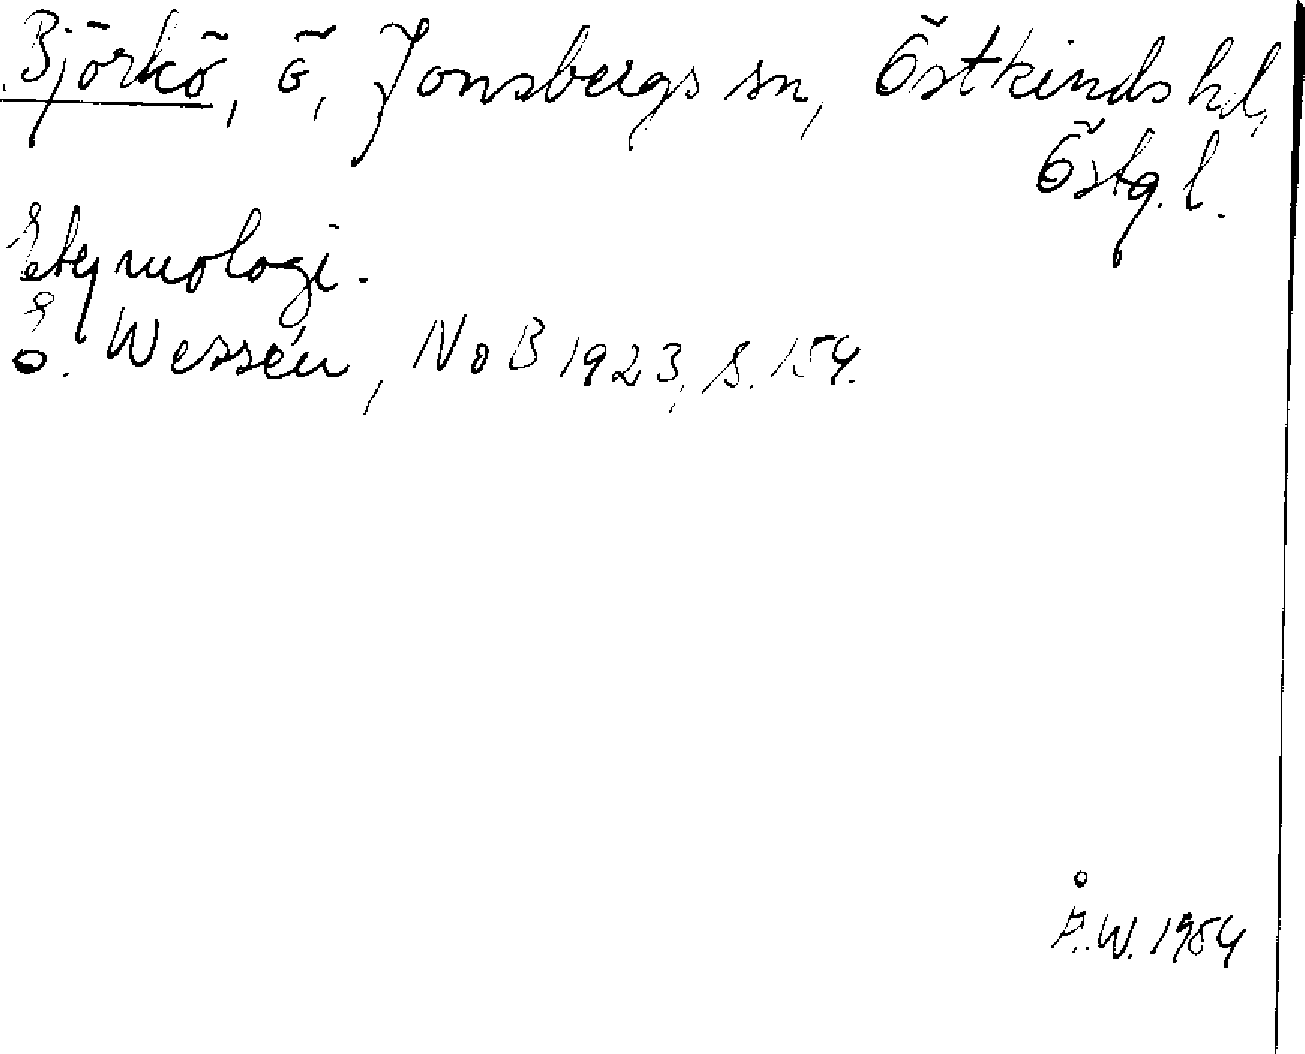 Björkö, ö, Jonsbergs sn, Östkinds hd,
Östg. l.
Etymologi.
E. Wessén, NoB 1923, s. 154.
Å.W. 1954